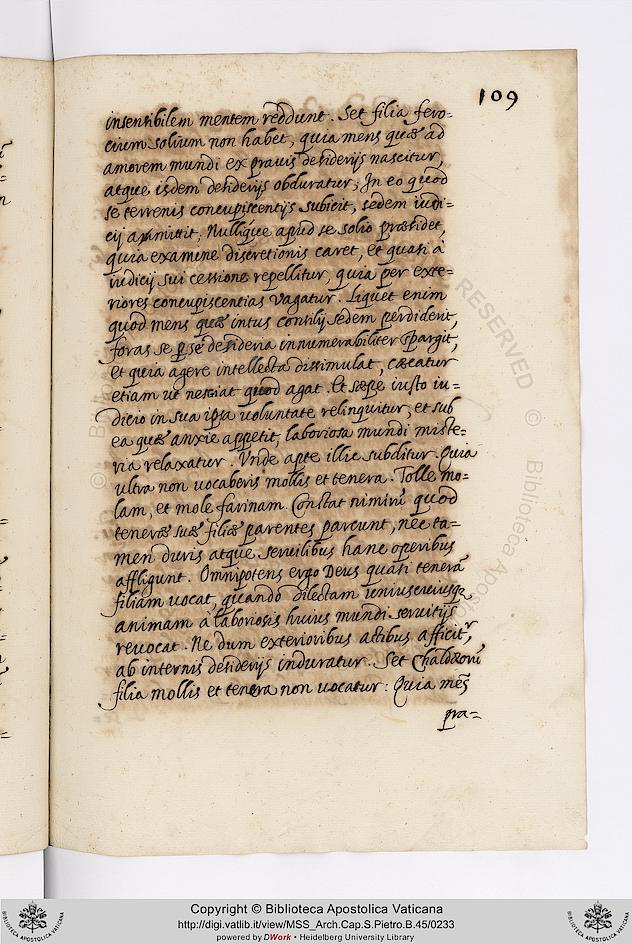 109
insensibilem mentem reddunt. Set filia fero=
cium solium non habet, quia mens quæ ad
amorem mundi ex prauis desiderijs nascitur,
atque isdem desiderijs obduratur; In eo quod
se terrenis concupiscentijs subicit, sedem iudi=
cij amittit; Nullique apud se solio præsidet,
quia examine discretionis caret, et quasi à
iudicij sui cessione repellitur, quia per exte=
riores concupiscentias vagatur. Liquet enim
quod mens quæ intus consilij sedem perdiderit,
foras se per desideria innumerabiliter spargit,
Et quia agere intellecta dissimulat, cæcatur
etiam ut nesciat quod agat. Et sepe iusto iu=
dicio in sua ipsa voluntate relinquitur, et sub
ea quæ anxie appetit, laboriosa mundi miste=
ria relaxatur. Vnde apte illic subditur. Quia
ultra non vocaberis mollis et tenera. Tolle mo=
lam, et mole farinam. Constat nimirũ quod
teneræ suæ filiæ parentes parcunt, nec ta=
men duris atque seruilibus hanc operibus
affligunt. Omnipotens ergo Deus quasi tenerã
filiam uocat, quando dilectam uniuscuiusq;
animam à laboriosis huius mundi seruitijs
reuocat. Ne dum exterioribus actibus afficitr,
ab internis desiderijs induratur. Set Chaldæorũ
filia mollis et tenera non uocatur: Quia mẽs
pra=
RESERVED
©
Biblioteca Apostolica
© Biblioteca
Copyright © Biblioteca Apostolica Vaticana
http://digi.vatlib.it/view/MSS_Arch.Cap.S.Pietro.B.45/0233
powered by DWork • Heidelberg University Library